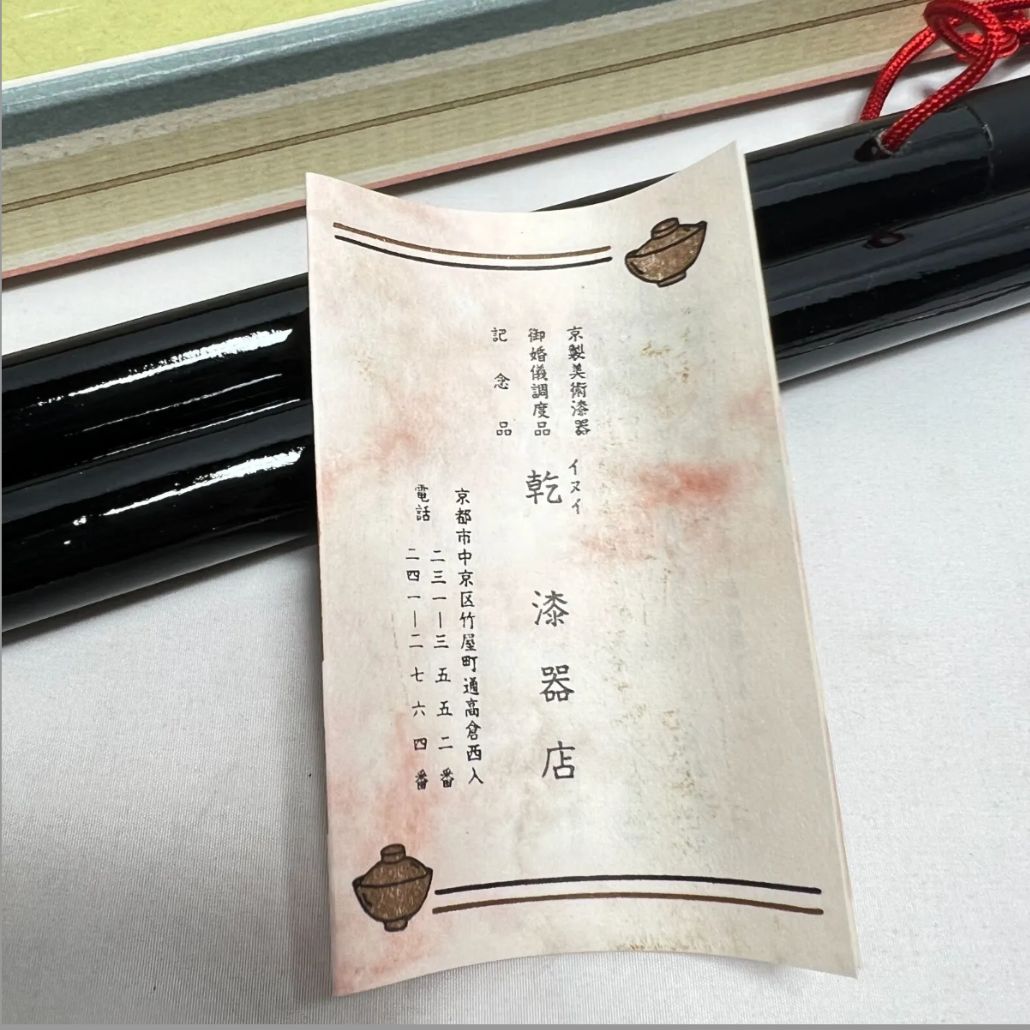 京製美術漆器
御婚儀調度品
記念品
イヌイ
乾漆器店
京都市中京区竹屋町通高倉西入
電話
二三一―三五五二番
二四一―二七六四番